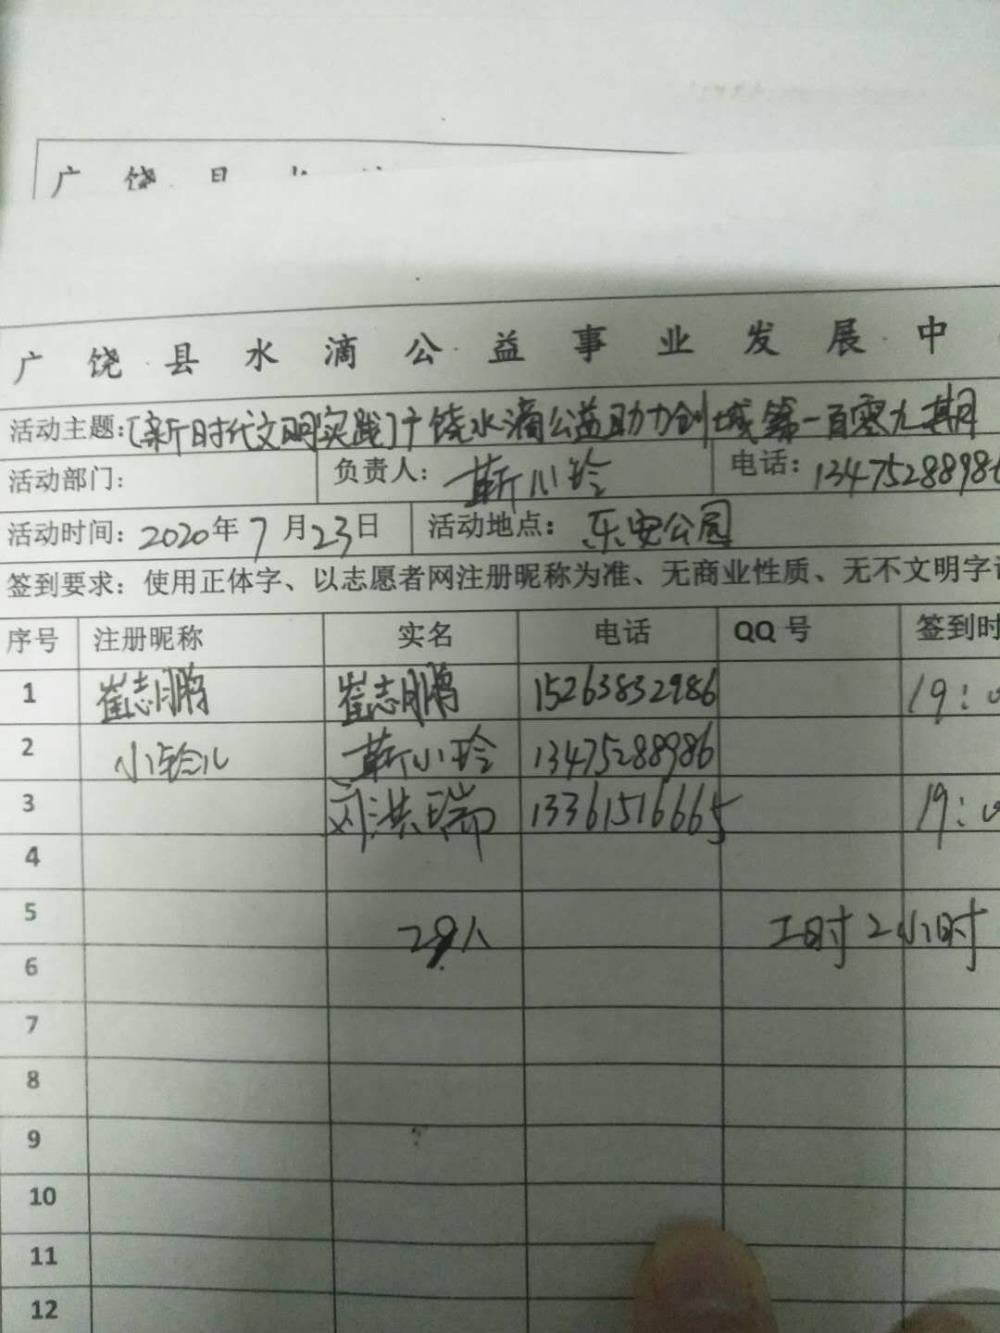 广饶县
广饶县水滴公益事业发展中
活动主题：[新时代文明实践]广饶水滴公益助力创城第一百零九期
活动部门： 负责人：靳小玲 电话：1347528898
活动时间：2020年7月23日 活动地点：乐安公园
签到要求：使用正体字、以志愿者网注册昵称为准、无商业性质、无不文明字
序号 注册昵称 实名 电话 QQ号 签到时
1 崔志鹏 崔志鹏 15263832986 19:
2 小铃儿 靳小玲 13475288986
3 刘洪瑞 13361516665 19:
4
5 29人 工时2小时
6
7
8
9
10
11
12